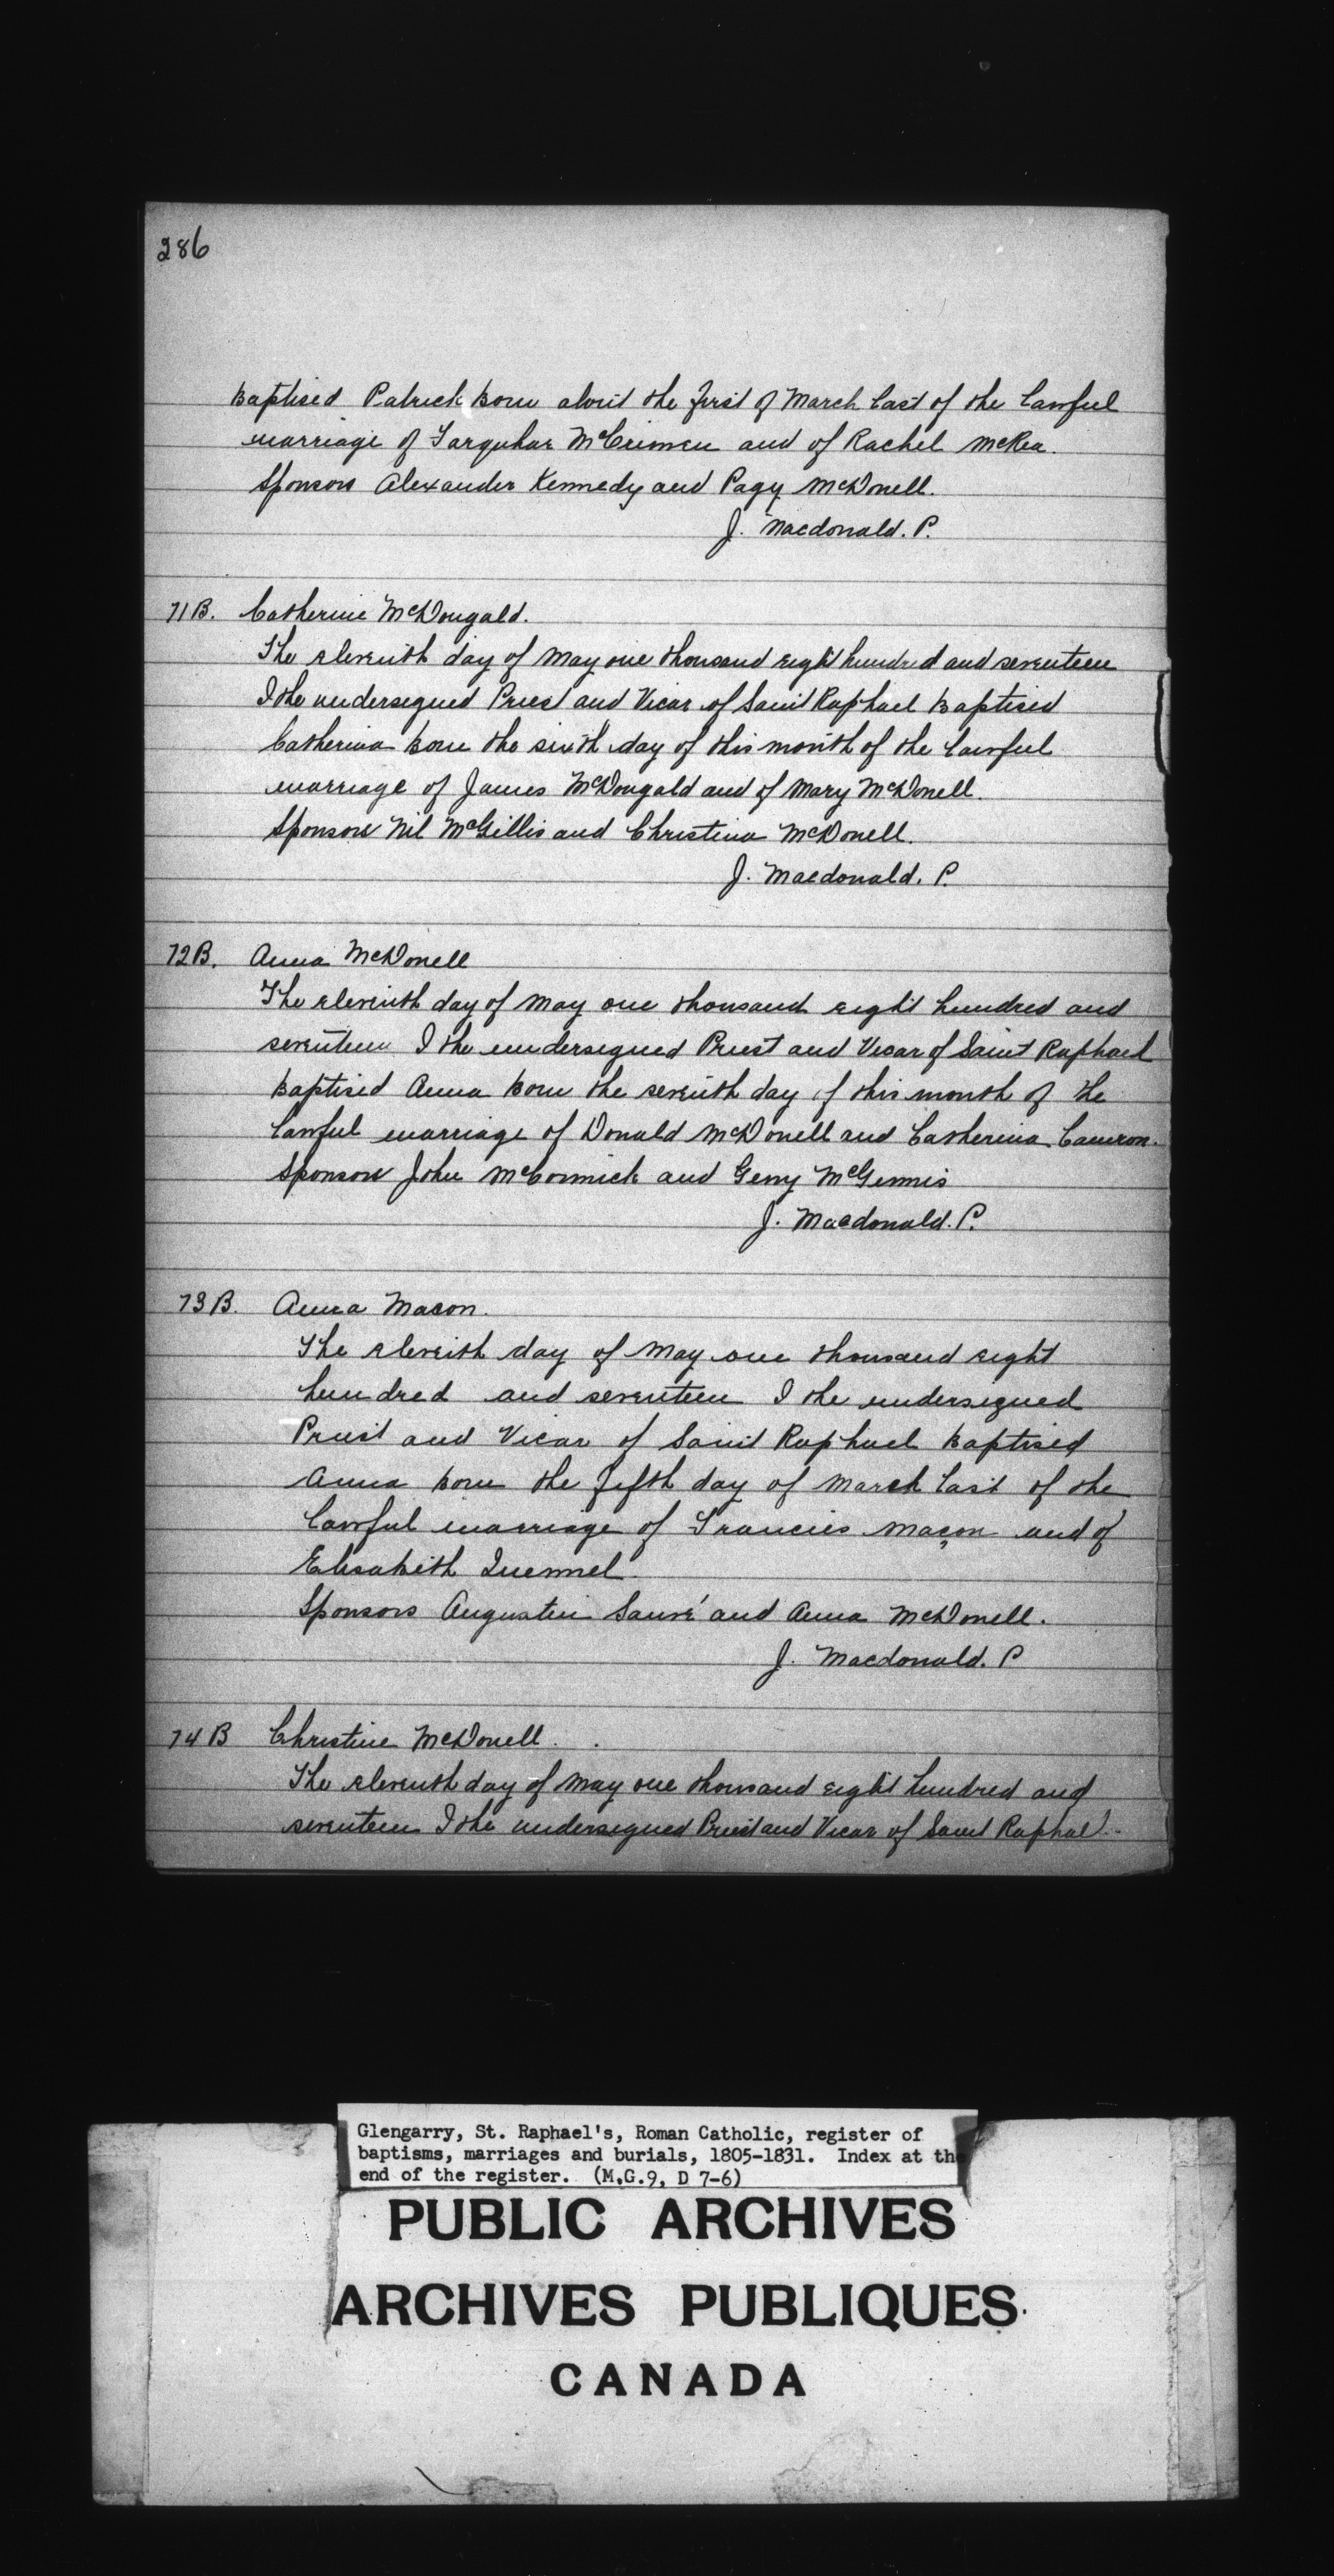 286
Baptised Patrick born about the first of March last of the lawful
marriage of Farquhar McCrimen and of Rachel McRea.
Sponsors Alexander Kennedy and Pagy McDonell.
J. Macdonald. P.
71B. Catherine McDougald.
The eleventh day of May one thousand eight hundred and seventeen
I the undersigned Priest and Vicar of Saint Raphael Baptised
Catherina born the sixth day of this month of the lawful
marriage of James McDougald and of Mary McDonell.
Sponsors Nil McGillis and Christina McDonell.
J. Macdonald. P.
72B. Anna McDonell
The eleventh day of May one thousand eight hundred and
seventeen I the undersigned Priest and Vicar of Saint Raphael
Baptised Anna born the seventh day of this month of the
lawful marriage of Donald McDonell and Catherina Cameron.
Sponsors John McCormick and Geny McGennis
J. Macdonald. P.
73B. Anna Macon.
The eleventh day of May one thousand eight
hundred and seventeen I the undersigned
Priest and Vicar of Saint Raphael Baptised
Anna born the fifth day of March last of the
lawful marriage of Francies Maçon and of
Elisabeth Quennel.
Sponsors Augustin Sauvé and Anna McDonell.
J. Macdonald. P
74B Christine McDonell.
The eleventh day of May one thousand eight hundred and
seventeen I the undersigned Priest and Vicar of Saint Raphael
Glengarry, St. Raphael's, Roman Catholic, register of
baptisms, marriages and burials, 1805-1831. Index at the
end of the register. (M.G.9, D 7-6)
PUBLIC ARCHIVES
ARCHIVES PUBLIQUES
CANADA